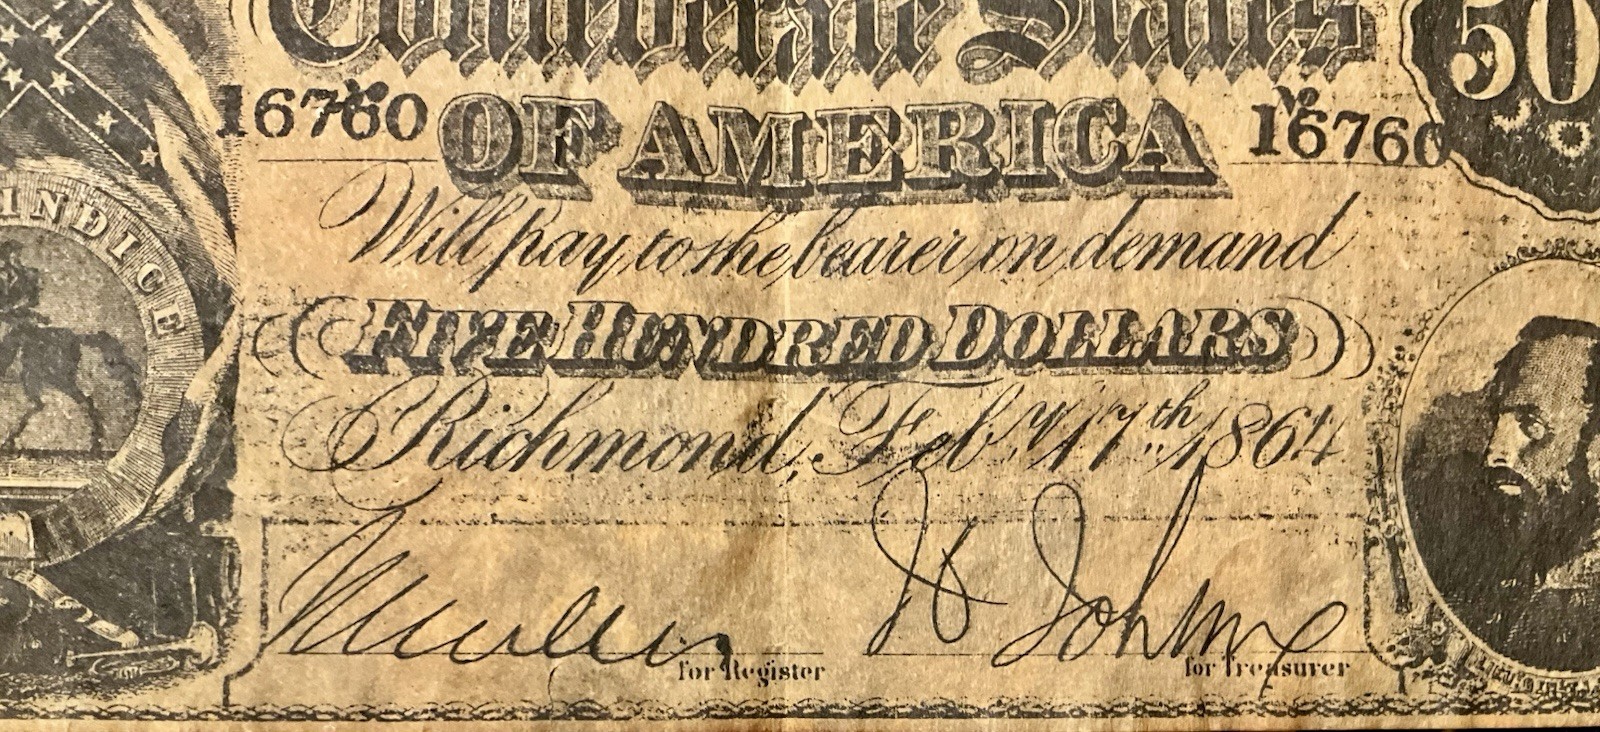 Confederate States
50
No 16760
OF AMERICA
No 16760
INDICE
Will pay to the bearer on demand
FIVE HUNDRED DOLLARS
Richmond, Feby. 17th 1864
for Register
for Treasurer